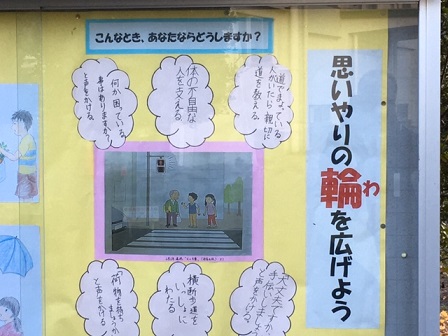 こんなとき、あなたならどうしますか?
思いやりの輪を広げよう
わ
道でまよっている
人がいたら親切に
道を教える。
体の不自由な
人を支える。
何か困っている
事はありますか?
と声をかける。
大丈夫ですか
手伝いましょうか
と声をかける
横断歩道を
いっしょに
わたる。
「荷物を持ち
ましょうか」
と声をかける